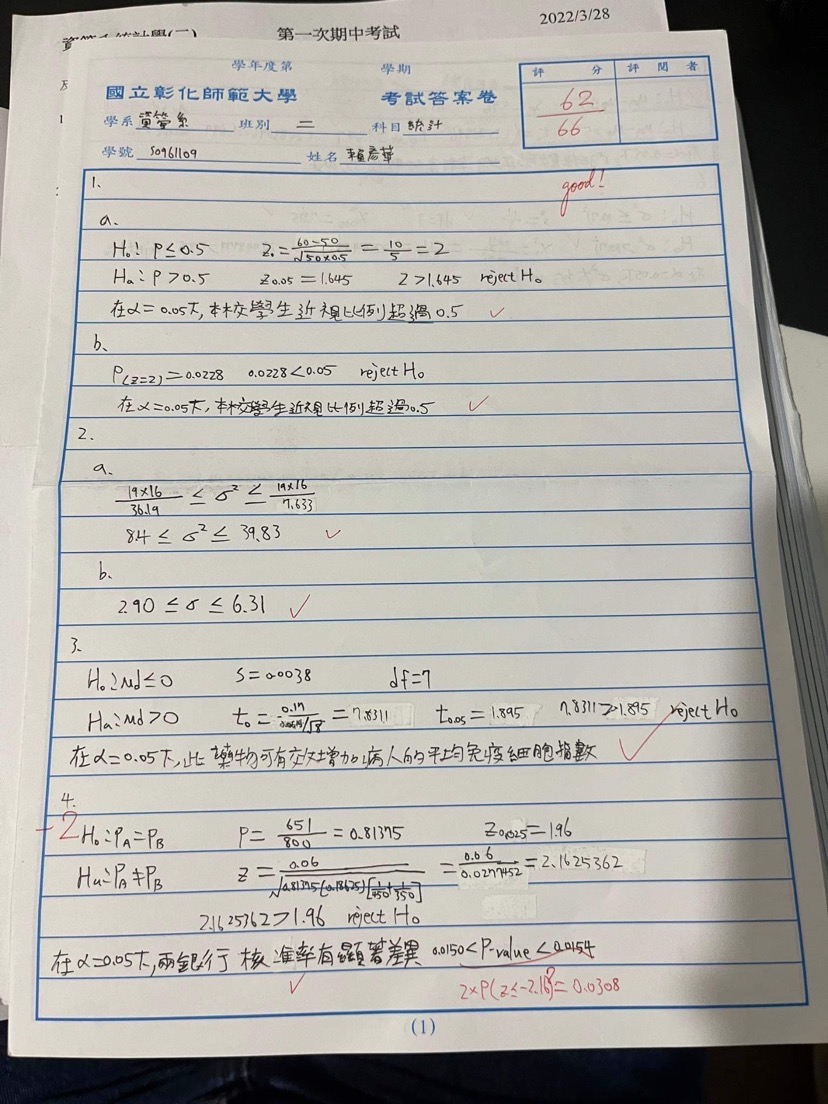 2022/3/28
第一次期中考試
學年度第 學期
國立彰化師範大學 考試答案卷
評分 評閱者
62
66
學系 資管系 班別 二 科目 統計
學號 S0961109 姓名
good!
1.
a.
H₀: P≤0.5 Z₀=(60-50)/√(50×0.5)=10/5=2
Ha: P>0.5 Z0.05=1.645 Z>1.645 reject H₀
在α=0.05下,本校學生近視比例超過0.5 ✓
b.
P(Z=2)=0.0228 0.0228<0.05 reject H₀
在α=0.05下,本校學生近視比例超過0.5 ✓
2.
a.
19×16/36.19 ≤ σ² ≤ 19×16/7.633
8.4 ≤ σ² ≤ 39.83 ✓
b.
2.90 ≤ σ ≤ 6.31 ✓
3.
H₀: Md≤0 S=0.0038 df=7
Ha: Md>0 t₀= 0.17 =7.8311 t0.05=1.895 7.8311>1.895 reject H₀
在α=0.05下,此藥物可有效增加病人的平均免疫細胞指數 ✓
4.
-2 H₀: PA=PB P=651/800=0.81375 Z0.025=1.96
Ha: PA≠PB Z=0.06/√(0.81375(0.18625)[1/450+1/350])=0.06/0.0277452=2.1625362
2.1625362>1.96 reject H₀
在α=0.05下,兩銀行核准率有顯著差異 0.0150<P-value<0.0154
✓ 2×P(Z≤-2.16)=0.0308
(1)